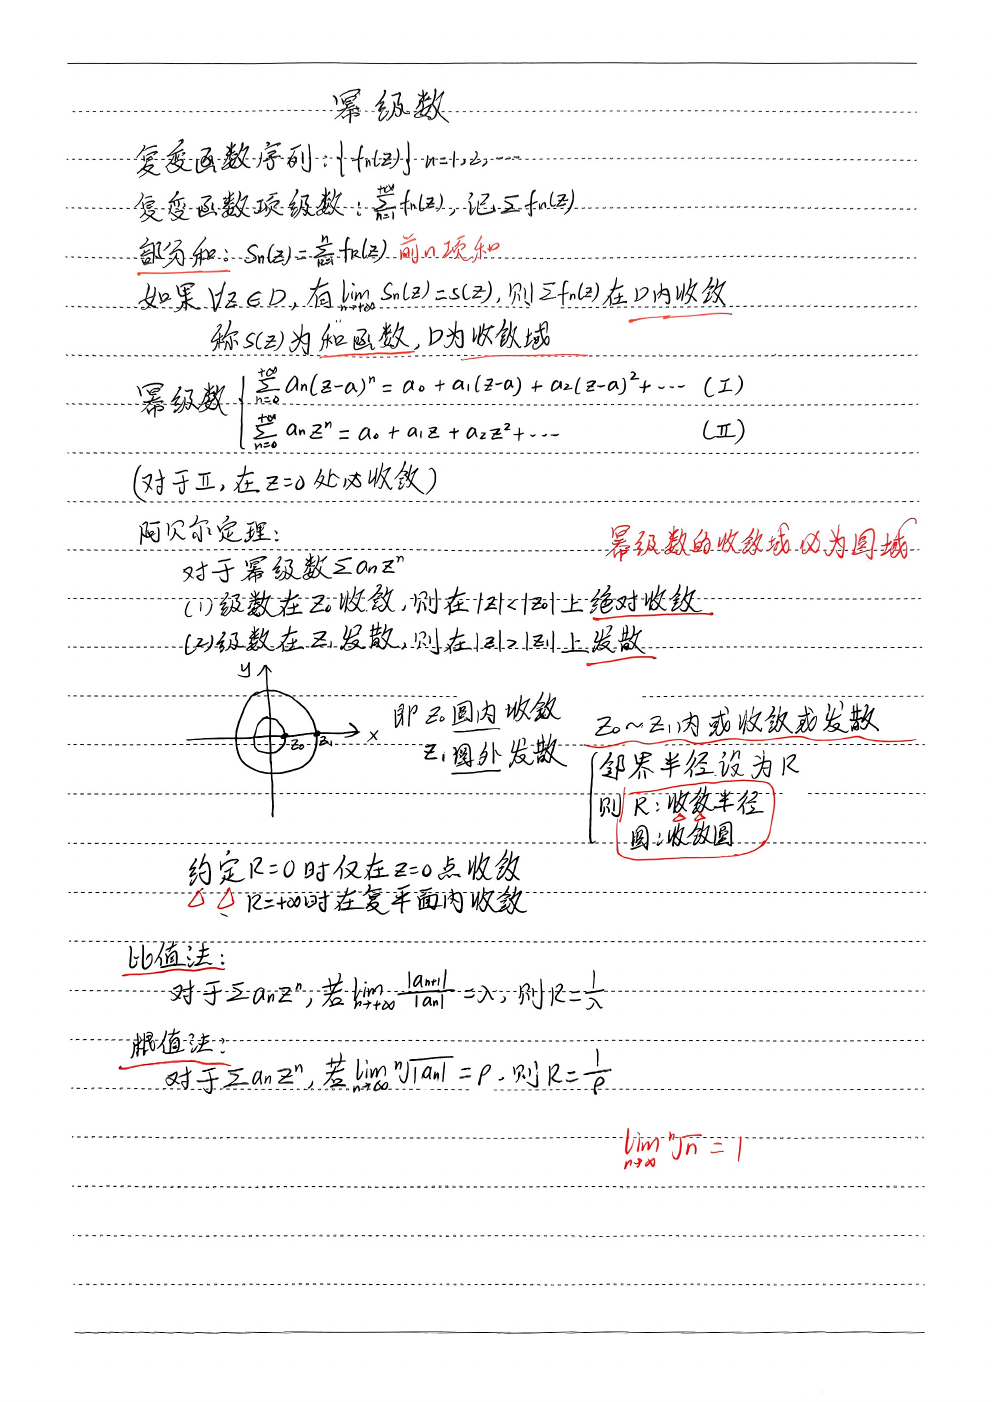 幂级数
复变函数序列:{fn(z)} n=1,2,···
复变函数项级数:$\sum_{n=1}^{+\infty}$fn(z),记Σfn(z)
部分和:Sn(z)=$\sum_{k=1}^{n}$fk(z) 前n项和
如果∀z∈D,有$\lim_{n\to+\infty}$Sn(z)=s(z),则Σfn(z)在D内收敛
称s(z)为和函数,D为收敛域
幂级数
$\sum_{n=0}^{+\infty}$an(z-a)ⁿ=a₀+a₁(z-a)+a₂(z-a)²+··· (Ⅰ)
$\sum_{n=0}^{+\infty}$anzⁿ=a₀+a₁z+a₂z²+··· (Ⅱ)
(对于Ⅱ,在z=0处必收敛)
阿贝尔定理:
幂级数的收敛域必为圆域
对于幂级数Σanzⁿ
(1)级数在z₀收敛,则在|z|<|z₀|上绝对收敛
(2)级数在z₁发散,则在|z|>|z₁|上发散
y
z₀ z₁ x
即z₀圆内收敛
z₁圆外发散
z₀~z₁内或收敛或发散
邻界半径设为R
则 R:收敛半径
圆:收敛圆
约定R=0时仅在z=0点收敛
R=+∞时在复平面内收敛
比值法:
对于Σanzⁿ,若$\lim_{n\to+\infty}\frac{|a_{n+1}|}{|a_n|}$=λ,则R=$\frac{1}{λ}$
根值法:
对于Σanzⁿ,若$\lim_{n\to\infty}\sqrt[n]{|a_n|}$=ρ,则R=$\frac{1}{ρ}$
$\lim_{n\to\infty}\sqrt[n]{n}$=1